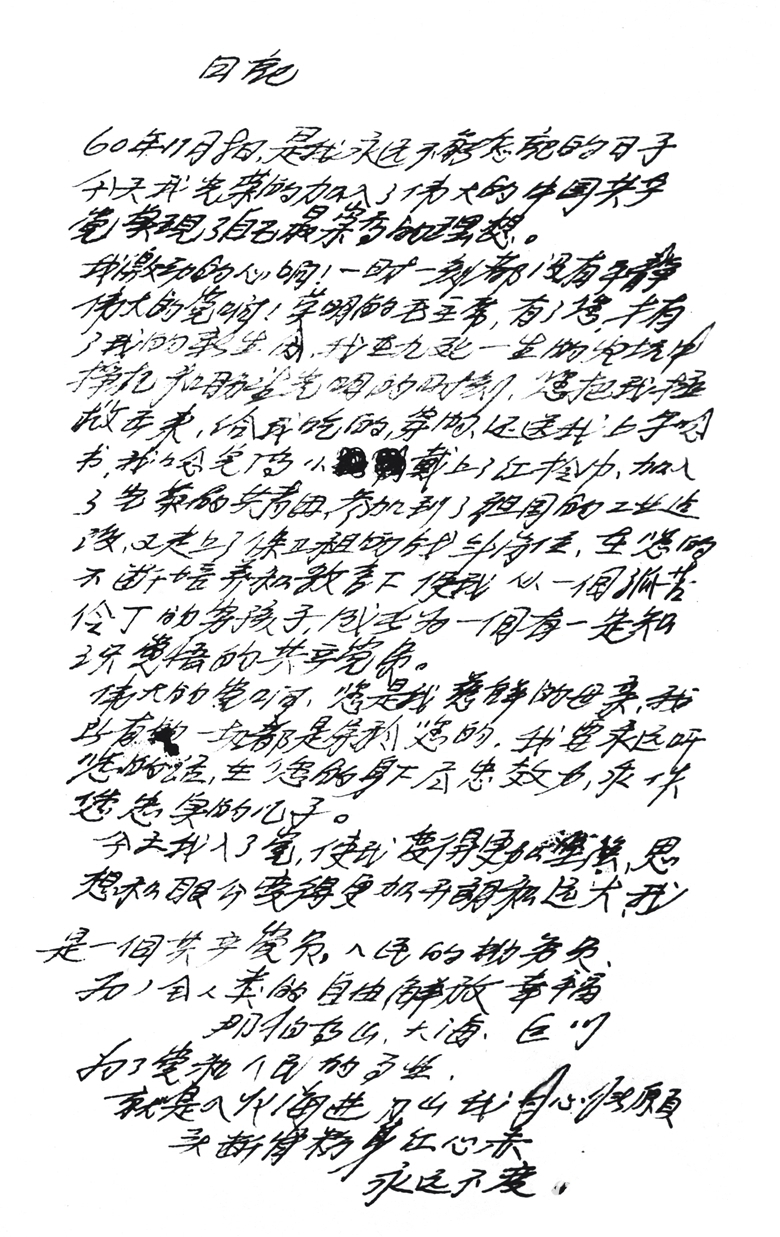 日记
60年11月8日,是我永远不能忘记的日子
今天我光荣的加入了伟大的中国共产
党实现了自己最崇高的理想。
我激动的心啊!一时一刻都没有平静
伟大的党啊!英明的毛主席,有了您,才有
了我的新生命,我在九死一生的火坑中
挣扎和盼望光明的时刻,您把我拯
救出来,给我吃的,穿的,还送我上学念
书,我念完高小 戴上了红领巾、加入
了光荣的共青团,参加到了祖国的工业建
设,又走上了保卫祖国的战斗岗位,在您的
不断培养和教育下使我从一个孤苦
伶丁的穷孩子,成长为一个有一定知
识觉悟的共产党员。
伟大的党啊、您是我慈祥的母亲,我
所有的一切都是属于您的,我要永远听
您的话,在您的身下尽忠效力,永作
您忠实的儿子。
今天我入了党,使我变得更加坚强,思
想和眼介变得更加开朗和远大,我
是一个共产党员,人民的勤务员、
为了全人类的自由解放幸福
那怕高山、大海、巨川
为了党和人民的事业.
就是入火海进刀山我甘心情愿
头断骨粉身红心赤
永远不变。